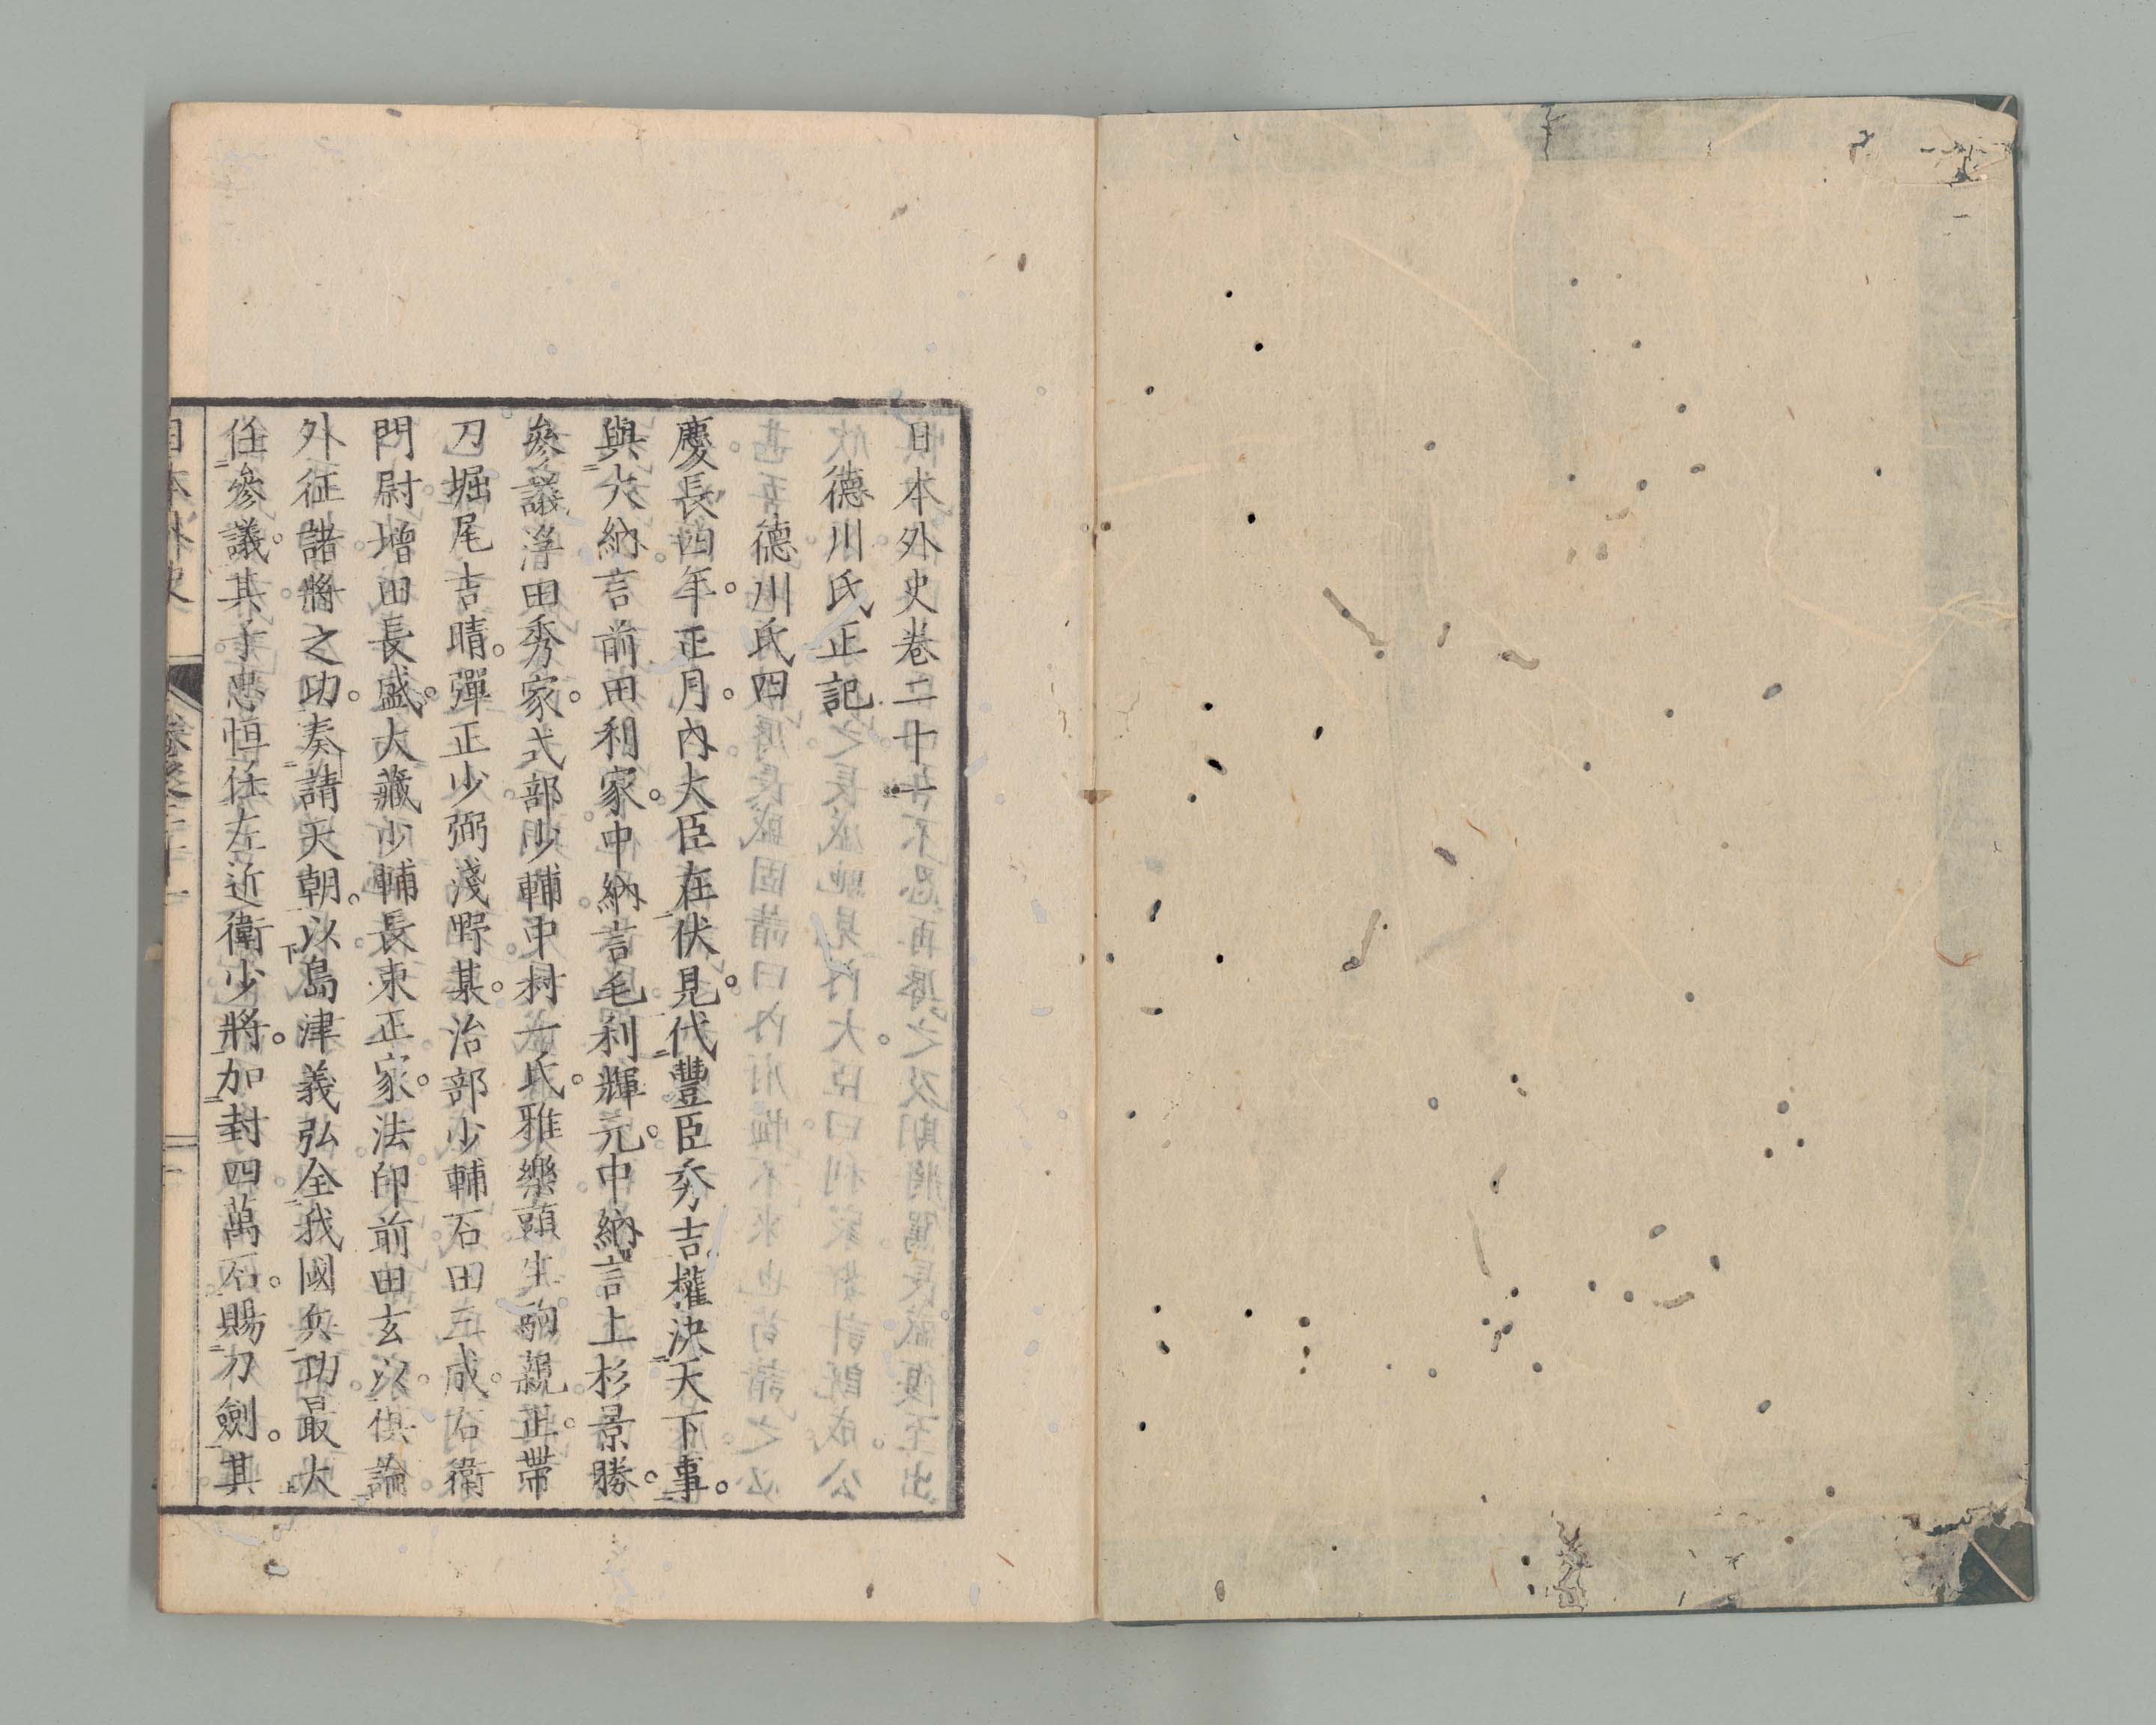 日本外史卷二十一
德川氏正記
德川氏四
慶長四年。正月。內大臣在伏見。代豐臣秀吉權決天下事。
與大納言前田利家。中納言毛利輝元。中納言上杉景勝。
參議浮田秀家。式部少輔中村一氏。雅樂頭生駒親正。帶
刀堀尾吉晴。彈正少弼淺野某。治部少輔石田三成。右衛
門尉增田長盛。大藏少輔長束正家。法印前田玄以。俱論
外征諸將之功。奏請天朝。以島津義弘全我國兵功最大
任參議。其子忠恒任左近衛少將。加封四萬石。賜刀劍。其
日本外史 卷之二十一